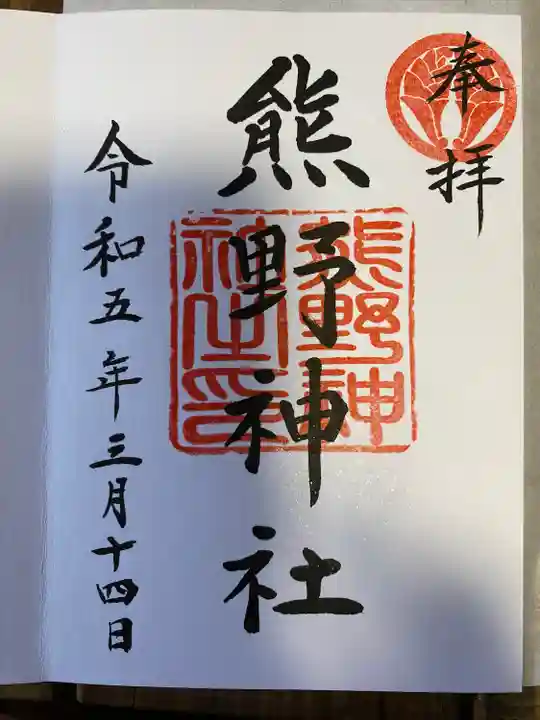 奉拝
熊野神社
熊野神
社之印
令和五年三月十四日